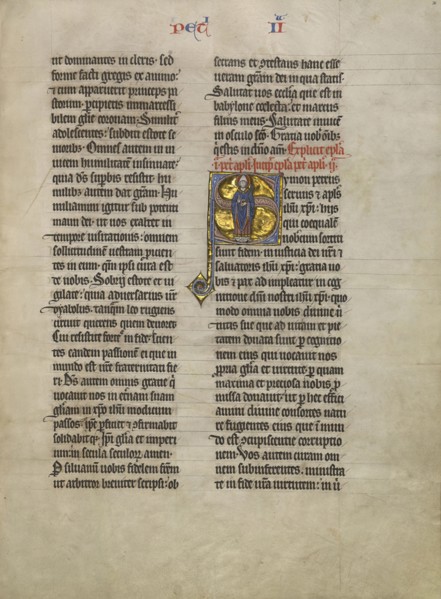 PET I II
ut dominantes in cleris. sed
forme facti gregis ex animo:
et cum apparuerit princeps pa
storum: percipietis inmarcessi
bilem glie coronam. Similit
adolescentes: subditi estote se
nioribus. Omnes autem in in
vicem humilitatem insinuate:
quia ds supbis resistit. hu
milibus autem dat gram. Hu
miliamini igitur sub potenti
manu dei. ut vos exaltet in
tempore visitationis: omnem
sollicitudinem vestram proicien
tes in eum. qm ipsi cura est
de vobis. Sobrii estote et vi
gilate: quia adversarius vr
dyabolus. tamqm leo rugiens
circuit querens quem devoret.
Cui resistite fortes in fide: scien
tes eandem passione ei que in
mundo est vre fraternitati fie
ri. Ds autem omnis gratie qi
vocavit nos in eternam suam
gliam in xpo ihu modicum
passos. ipse pficiet et confirmabit
solidabitq. Ipi glia et imperi
um in secula seculorum amen.
P silvanu vobis fidelem frem
ut arbitror breviter scripsi: ob
secrans et contestans hanc esse
veram gram dei in qua statis.
Salutat vos ecclia que est in
babylone coelecta: et marcus
filius meus. Salutate invice
in osculo sco. Gratia vobis omibus
qi estis in xpo am. Explicit epla
i. petri apli. Incip epla petri apli. ij.
Symon petrus
servus et apls
ihu xpi: hiis
qui coequale
nobiscum sortiti
sunt fidem. in iusticia dei nri et
salvatoris ihu xpi: gratia vo
bis et pax adimpleatur in cog
nitione dni nostri ihu xpi. quo
modo omnia nobis divine vi
tutis sue que ad vitam et pie
tatem donata sunt. p cognitio
nem eius qui vocavit nos
propria glia et virtute. p quam
maxima et preciosa nobis p
missa donavit. ut p hec effici
amini divine consortes natu
re. fugientes eius que in mun
do est concupiscentie corruptio
nem. Vos autem curam om
nem subinferentes. ministra
te in fide vra virtutem: in vi